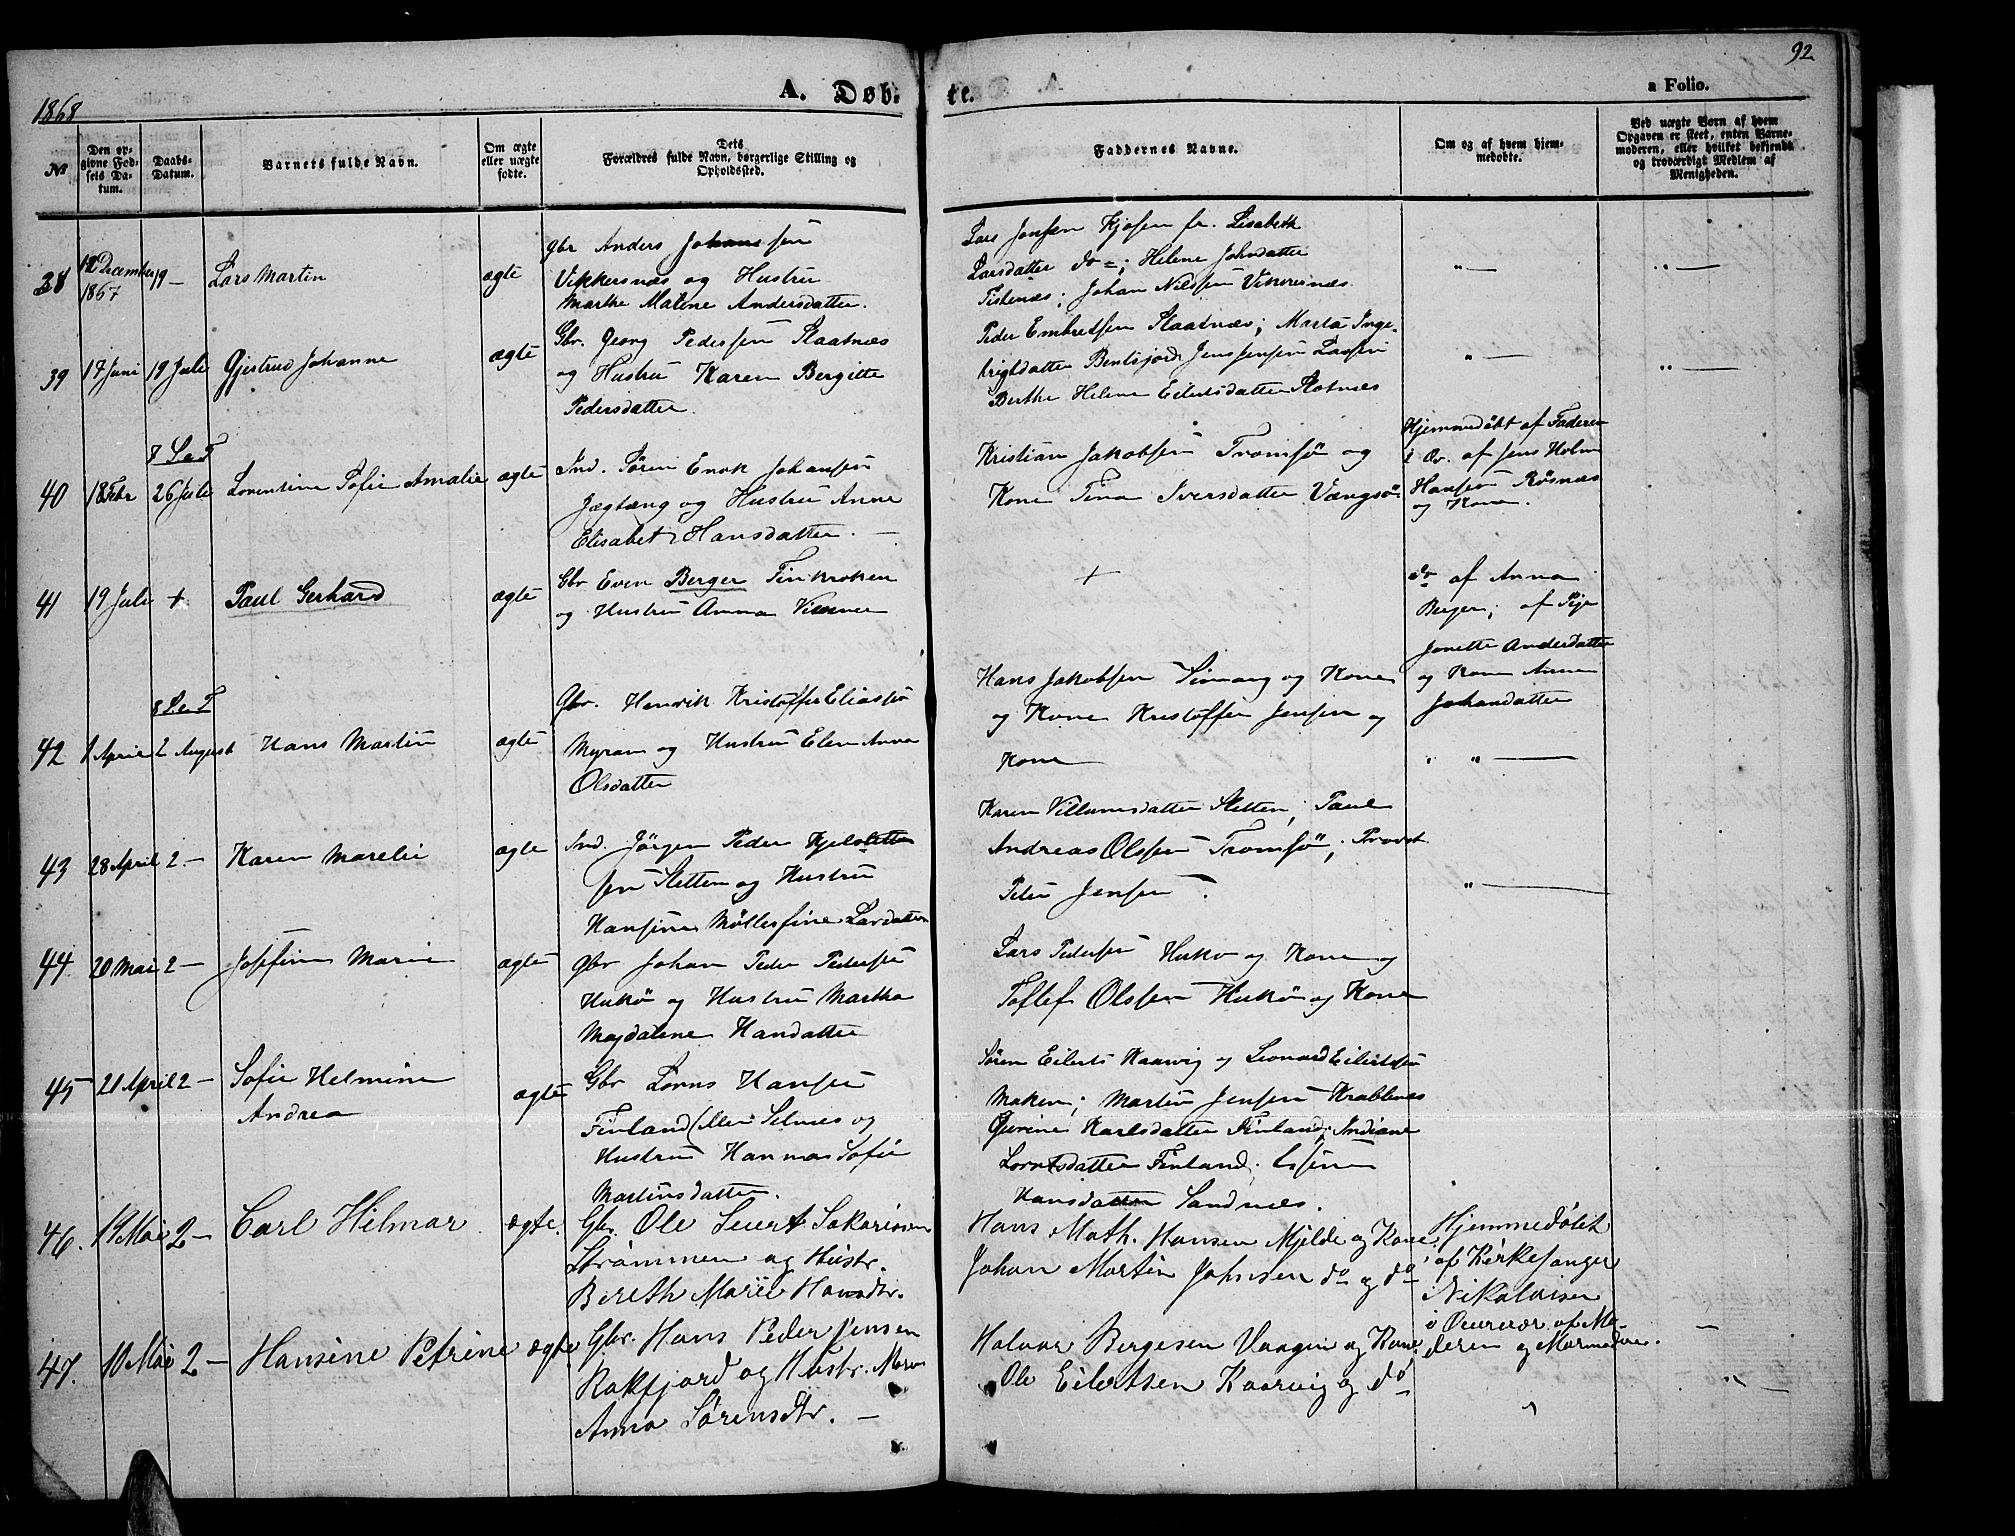 1868
A. Døb.
te.
92
a Folio.
№
Den op-
givne Fød-
sels Da-
tum.
Daabs-
Datum.
Barnets fulde Navn.
Om ægte
eller uægte
fødte.
Dets
Forældres fulde Navn, borgerlige Stilling og
Opholdssted.
Faddernes Navne.
Om og af hvem hjem-
medøbte.
Ved uægte Børn af hvem
Opgaven er skeet, enten Barne-
moderen, eller hvilket bekjendt
og troværdigt Medlem af
Menigheden.
38
12 December
1867
19 —
Lars Martin
ægte
Gbr Anders Johanssen
Vikkersnæs og Hustru
Marthe Malene Andersdatter.
Lars Jensen Kjosen fr. Lisabeth
Larsdatter do; Helene Johndatter
Tistenæs; Johan Nilssen Vikersnæs
" —
" —
39
17 Juni
19 Juli
Gjertrud Johanne
ægte
Gbr. Georg Pedersen Slaatnæs
og Hustru Karen Bergitte
Pedersdatter.
Peder Embretsen Slaatnæs; Marta Inge-
brigtdatter Bentsjord Jens Jensen
Berthe Helene Eilertsdatter Slotnæs
" —
" —
7 S e T
40
18 Febr
26 Juli
Lorentine Sofie Amalie
ægte
Ind. Søren Enok Johansen
Jægtæng og Hustru Anne
Elisabet Hansdatter. —
Kristian Jakobsen Tromsø og
Kone Tina Iversdatter Vængsø
Hjemmedøbt af Faderen
i Ov. af Jens Holm
Hansen Røsnæs
og Kone.
41
19 Juli
+
Paul Gerhard
ægte
Gbr Even Berger Finkroken
og Hustru Anna
+
do af Anna
Berger; af Pige
Jonette Andersdatter
og Kone Anne
Johandatter
8 S e T
42
1 April
2 August
Hans Martin
ægte
Gbr. Henrik Kristoffer Eliassen
Myran og Hustru Elen Anna
Olsdatter
Hans Jakobsen Simavg og Kone
og Kone Kristoffer Jensen og
Kone
" —
43
28 April
2 —
Karen Marelie
ægte
Ind. Jørgen Peder Kjeld
sen Sletten og Hustru
Hansine Møllerfine Larsdatter
Karen Villumsdatter Sletten; Paul
Andreas Olssen Tromsø; Provst
Peter Jensen.
" —
44
20 Mai
2 —
Josefine Marie
ægte
Gbr Johan Peder Pedersen
Hukø og Hustru Martha
Magdalene Handatter
Lars Pedersen Hukø og Kone og
Toflef Olssen Hukø og Kone
45
21 April
2 —
Sofie Helmine
Andrea
ægte
Gbr Lorns Hansen
Finland (eller Selnes og
Hustru Hanna Sofie
Martinsdatter.
Søren Eilerts Kaarvig og Leonard Eilertsen
Maken; Martin Jensen Krabbenæs
Gjerine Karlsdatter Finland; Indiane
Lorntsdatter Finland;
Hansdatter Sandnæs.
46.
19 Mai
2 —
Carl Hilmar
ægte.
Gbr. Ole Seiert Sakariasen
Strømmen og Hustr.
Bereth Marie Hansdtr.
Hans Math. Hansen Mjelde og Kone
Johan Martin Johnsen do og do
Hjemmedøbt
af Kirkesanger
Nikolaisen
i Overvær af Mo-
deren og Mormoder.
—
47.
10 Mai
2 —
Hansine Petrine
ægte
Gbr. Hans Peder Jensen
Rakfjord og Hustr. Maren
Anna Sørensdtr. —
Halvor Bergesen Vaagen og Kone
Ole Eilertsen Kaarvig og do
"
" —